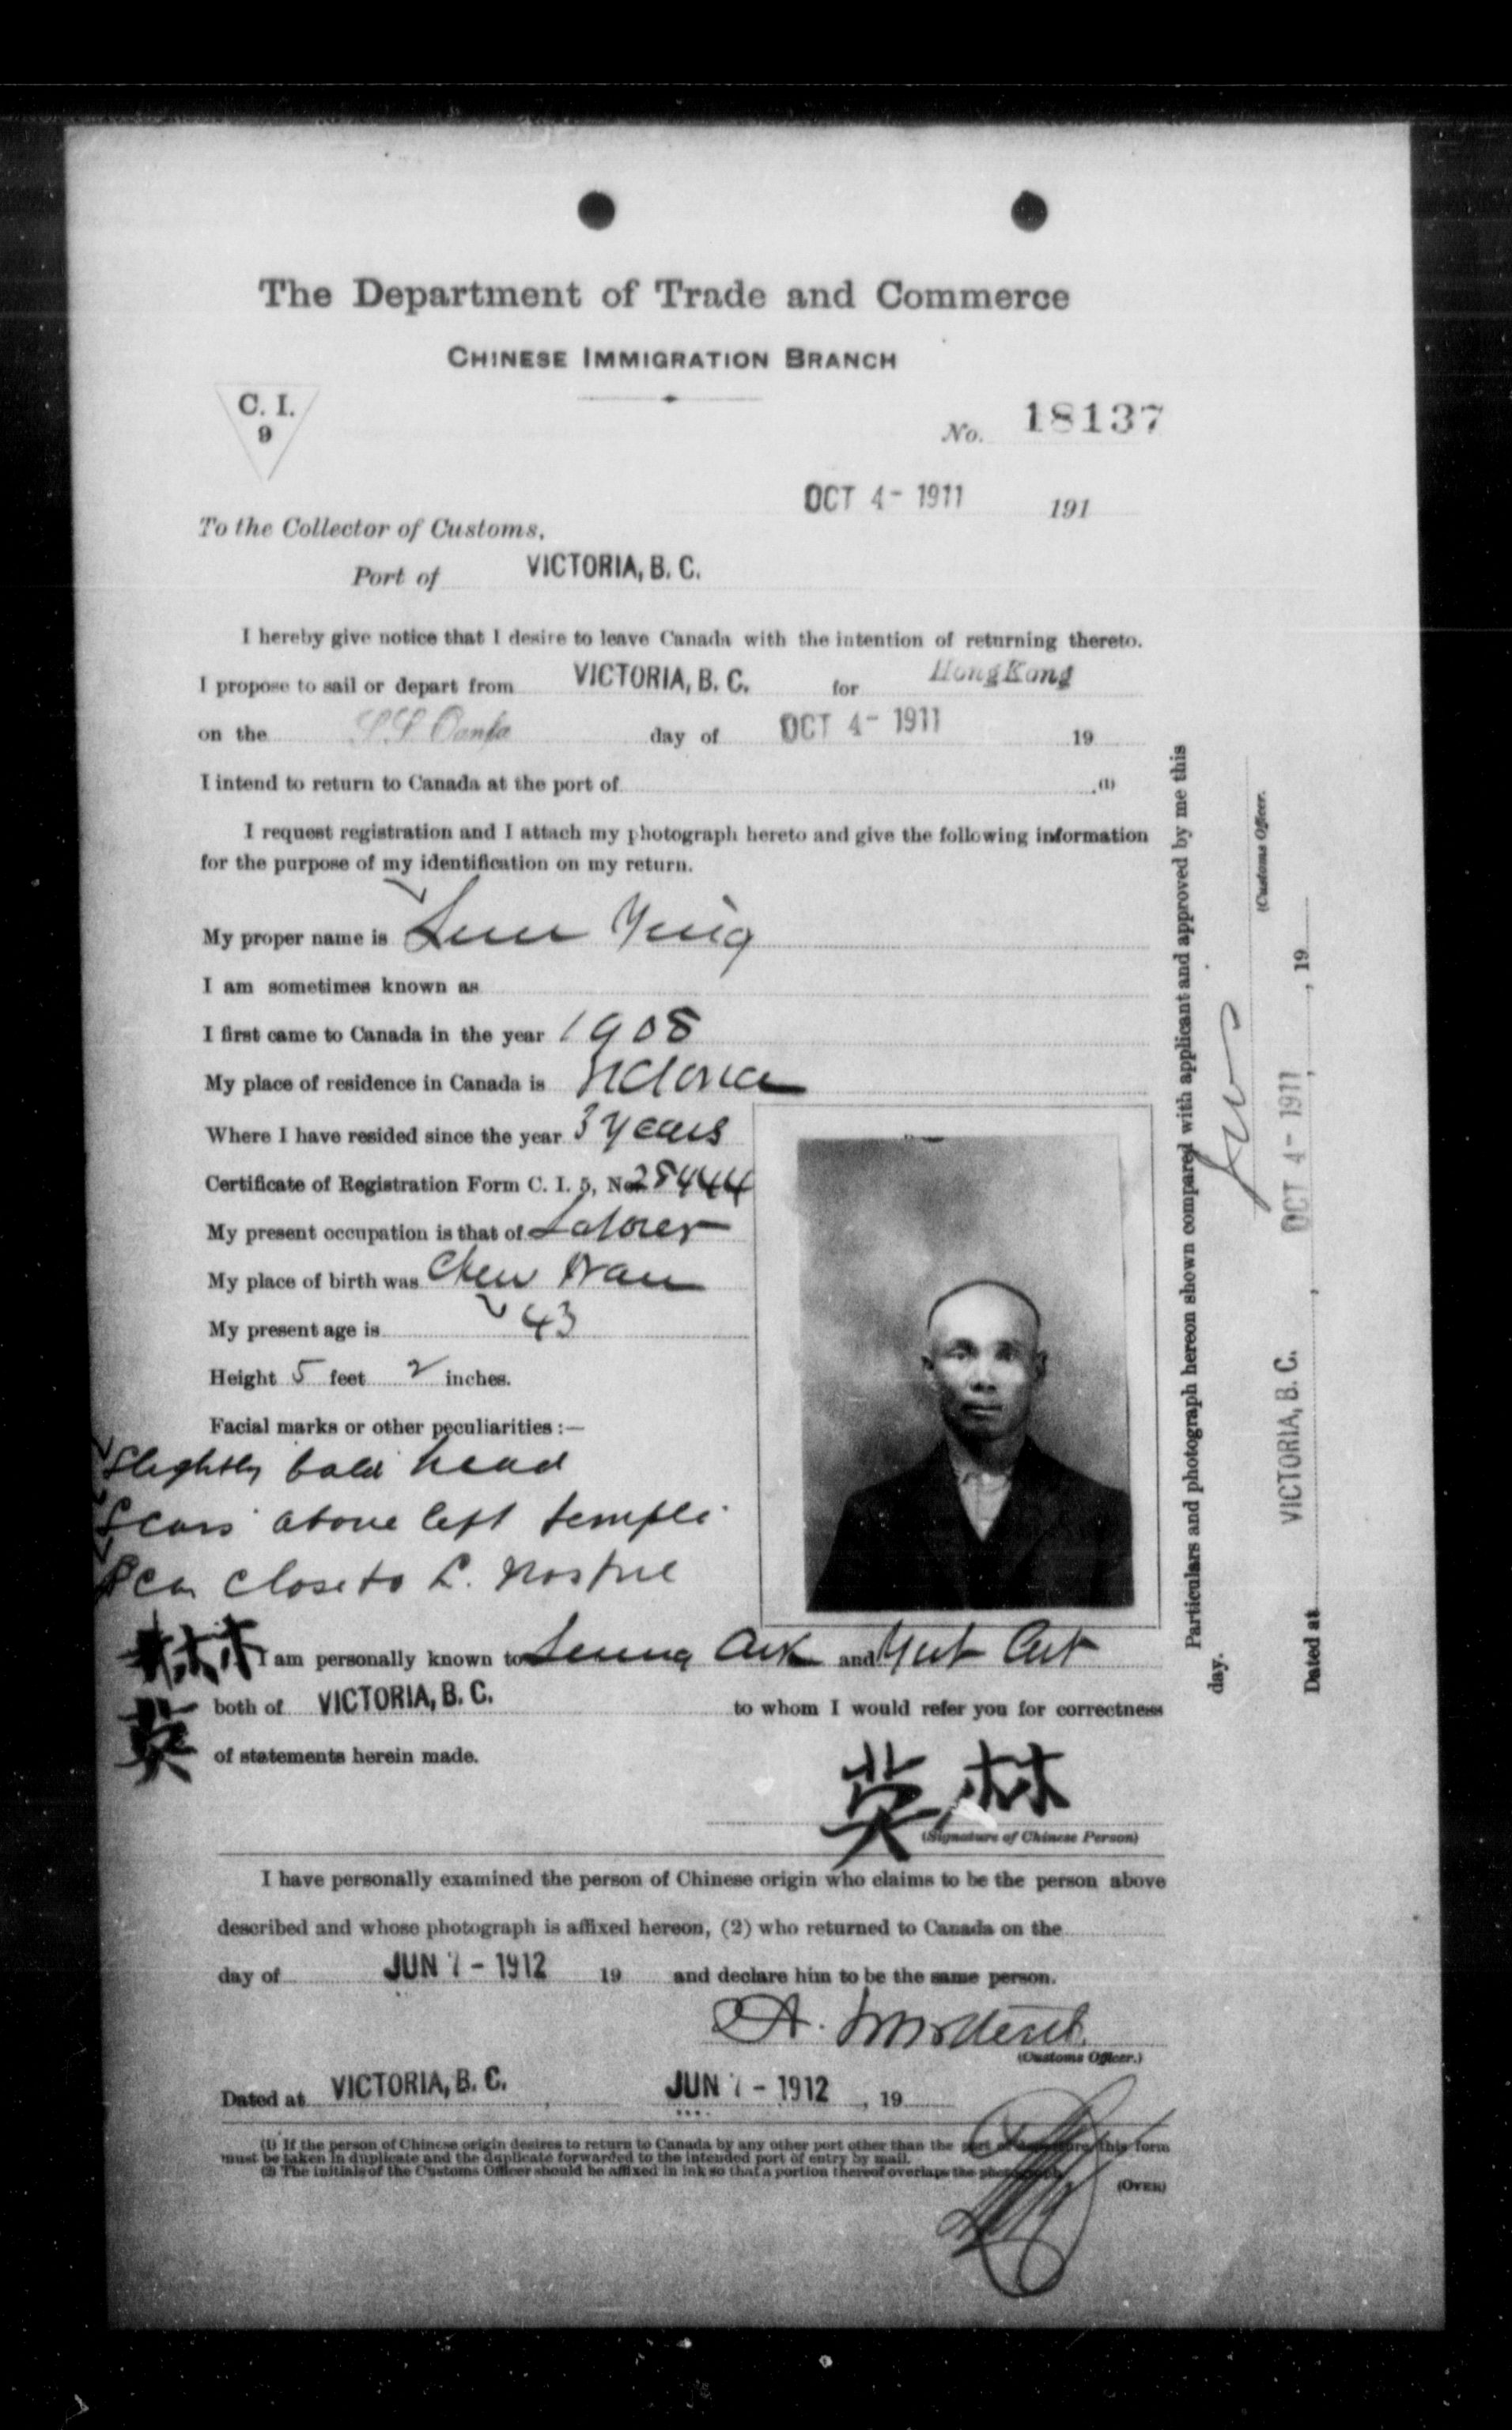 The Department of Trade and Commerce
CHINESE IMMIGRATION BRANCH
C. I.
9
No. 18137
OCT 4 - 1911 191
To the Collector of Customs,
Port of VICTORIA, B. C.
I hereby give notice that I desire to leave Canada with the intention of returning thereto.
I propose to sail or depart from VICTORIA, B. C. for HongKong
on the S.S. day of OCT 4 - 1911 19
I intend to return to Canada at the port of .(1)
I request registration and I attach my photograph hereto and give the following information
for the purpose of my identification on my return.
My proper name is Ying
I am sometimes known as
I first came to Canada in the year 1908
My place of residence in Canada is Victoria
Where I have resided since the year 3 years
Certificate of Registration Form C. I. 5, No. 28444
My present occupation is that of Laborer
My place of birth was
My present age is 43
Height 5 feet 2 inches.
Facial marks or other peculiarities :—
Slightly bald head
Scars above left temple
Scar close to L. nostril
林英
I am personally known to and
both of VICTORIA, B. C. to whom I would refer you for correctness
of statements herein made.
英林
(Signature of Chinese Person)
I have personally examined the person of Chinese origin who claims to be the person above
described and whose photograph is affixed hereon, (2) who returned to Canada on the
day of JUN 7 - 1912 19 and declare him to be the same person.
(Customs Officer.)
Dated at VICTORIA, B. C. , JUN 7 - 1912 , 19
(1) If the person of Chinese origin desires to return to Canada by any other port other than the port of departure this form
must be taken in duplicate and the duplicate forwarded to the intended port of entry by mail.
(2) The initials of the Customs Officer should be affixed in ink so that a portion thereof overlaps the photograph.
(OVER)
Particulars and photograph hereon shown compared with applicant and approved by me this
day.
(Customs Officer.
Dated at VICTORIA, B. C. , OCT 4 - 1911 , 19